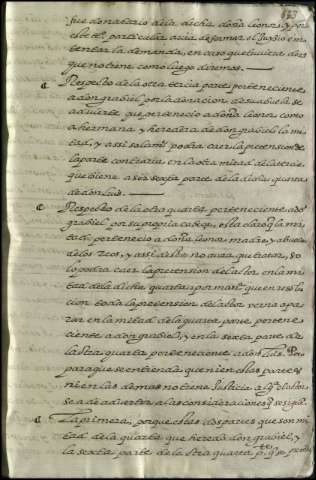 fue donatario de la dicha doña leonor, y por
este titº particular avia de formar el Juyzio e in
tentar la demanda, en caso que tuviera dro
que no tiene como luego diremos.
Respecto de la otra tercia parte perteneciente
a don gabriel por la donacion de su abuela se
advierte que pertenecio a doña leonor como
a hermana y heredera de don gabriel la mi
tad, y assi solamte podra caer la pretension de
la parte contraria en la otra mitad de la tercia
que viene a ser sexta parte de la dicha quinta
de don luis.
Respecto de la otra quarta perteneciente a dō
gabriel por su propria cabeça, esta claro q la mi
tad pertenecio a doña leonor madre, y abuela
de los reos, y assi della no avra que tratar, so
lo podra caer la pretension del actor en la mi
tad de la dicha quarta, por manera que en resolu
cion toda la pretension del actor verna a pa
rar en la mitad de la quarta parte pertene
ciente a don gabriel, y en la sexta parte de
la otra quarta perteneciente a dō luis. Y
para que se entienda que ni en estas partes
ni en las demas no tiene Justicia alga el actor
se a de advertir a las consideraciones q se sigue.
La primera, porque estas dos partes que son mi
tad de la quarta que heredo don gabriel, y
la sexta parte de la otra quarta